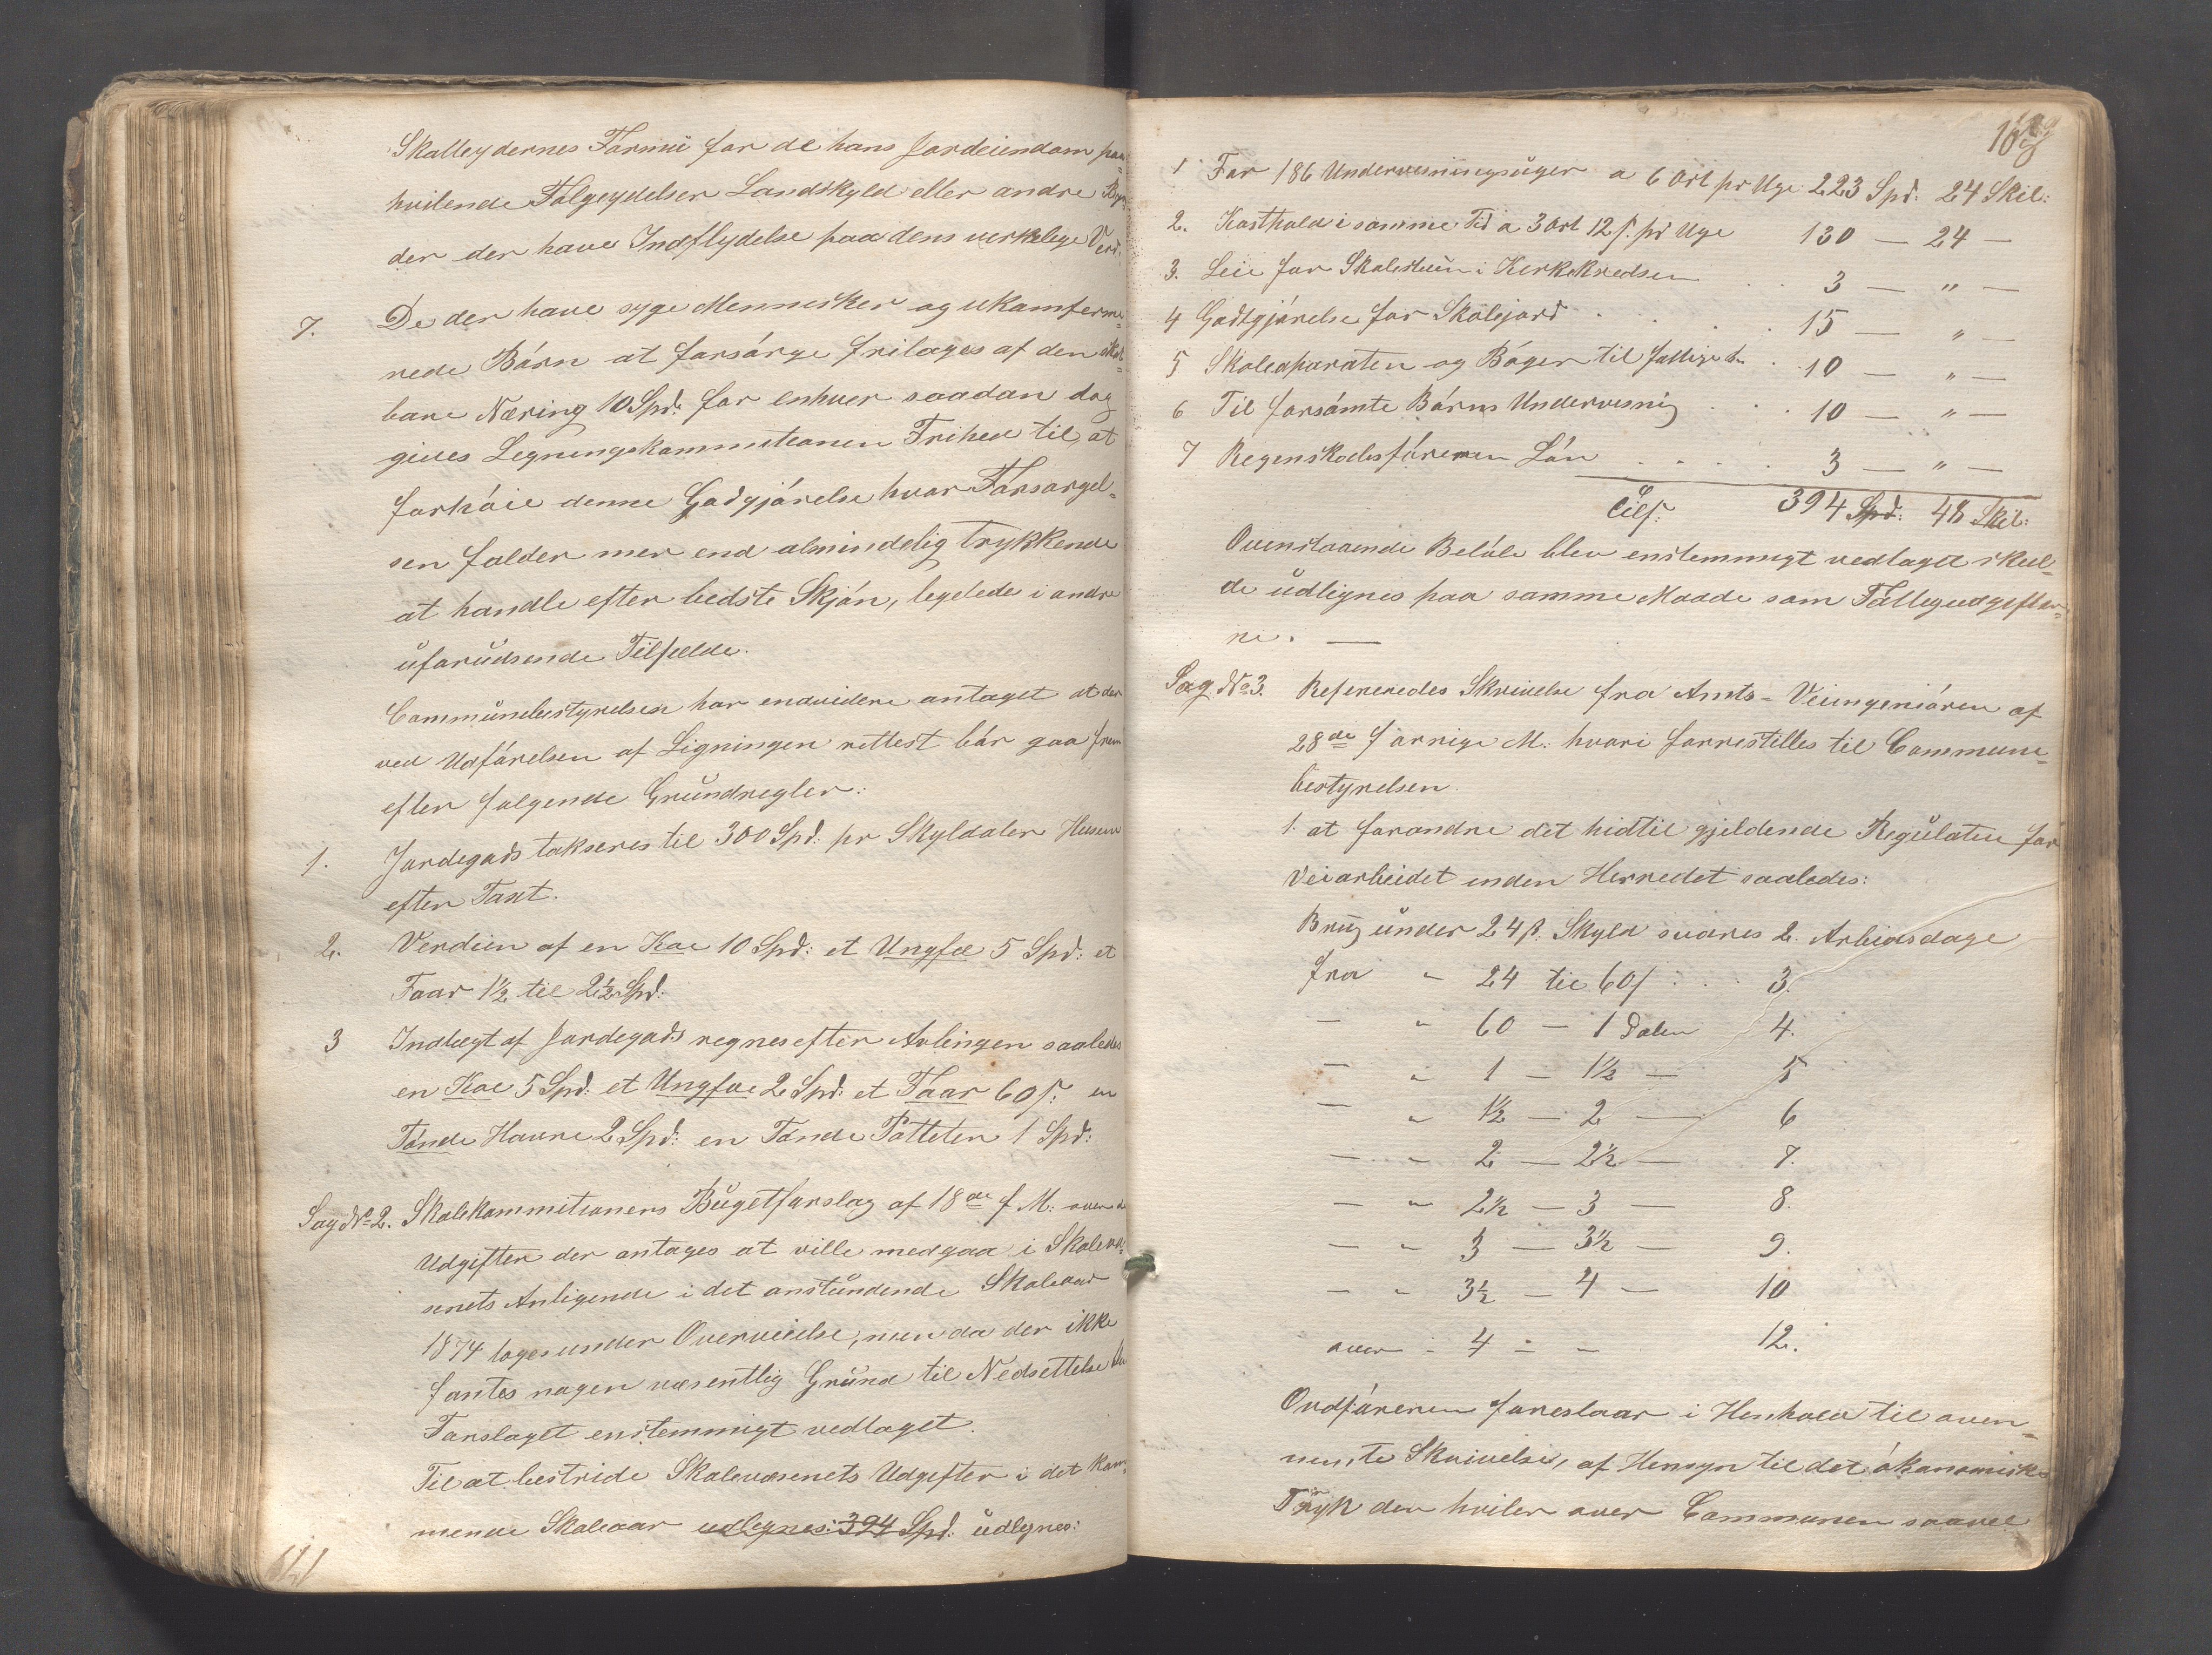 Skatteydernes Formue for de hans Jordeiendom paa-
hvilende Følgeydelser Landskyld eller andre Byr-
der der have Indflydelse paa dens verkelige Verd.
7. De der have syge Mennesker og ukomferme-
rede Børn at forsørge frilages af den skat-
bare Næring 10 Spd. for enhver saadan dog
gives Legningskommitionen Frihed til at
forhøie denne Godgjørelse hvor Forsørgel-
sen falder mer end almindelig trykkende
at handle efter bedste Skjøn, legeledes i andre
uforudsende Tilfælde.
Communbestyrelsen har endvidere antaget at der
ved Udførelsen af Ligningen rettest bør gaa frem
efter følgende Grundregler:
1. Jordegods takseres til 300 Spd: pr Skyldaler Husene
efter Taxt.
2. Verdien af en Koe 10 Spd: et Ungfæ 5 Spd: et
Faar 1½ til 2½ Spd:
3 Indtægt af Jordegods regnes efter Avlingen saaledes
en Koe 5 Spd: et Ungfæ 2 Spd: et Faar 60 s: en
Tønde Havre 2 Spd: en Tønde Potteter 1 Spd:
Sag No 2. Skolekommitionens Bugetforslag af 18de f M: over de
Udgifter der antages at ville medgaa i Skoleve-
senets Anligende i det anstundende Skoleaar
1874 toges under Overveielse, men da der ikke
fantes nogen væsentlig Grund til Nedsettelse blev
Forslaget enstemmigt vedtaget.
Til at bestride Skolevæsenets Udgifter i det kom-
mende Skoleaar udlegnes: 394 Spd: udlegnes:
141
169
1 For 186 Undervisningsuger a 6 Ort pr Uge 223 Spd: 24 Skil:
2. Kosthold i samme Tid a 3 Ort 12 s. pr Uge 130 — 24 —
3. Leie for Skolestuen i Kirkekredsen . . 3 — " —
4 Godtgjørelse for Skolejord . . . . 15 — " —
5 Skoleaparater og Bøger til fattige b. . . 10 — " —
6 Til forsømte Børns Undervisnig . . . 10 — " —
7 Regenskabsføreren Løn . . . . 3 — " —
Tils. 394 Spd: 48 Skil:
Ovenstaaende Beløb blev enstemmigt vedtaget skul-
de udlignes paa samme Maade som Fattigudgifter-
ne. —
Sag No 3. Refereredes Skrivelse fra Amts-Veiingeniøren af
28de forrige M: hvori forrestilles til Commune-
bestyrelsen
1. at forandre det hidtil gjeldende Regulativ for
Veiarbeidet inden Herredet saaledes:
Brug under 24 s. Skyld svares 2. Arbeidsdage
fra " 24 til 60 s . . 3.
— " 60 — 1 Daler 4.
— " 1 — 1½ — 5
— " 1½ — 2 — 6
— " 2 — 2½ — 7.
— " 2½ — 3 — 8.
— " 3 — 3½ — 9.
— " 3½ — 4 — 10
over " 4 — — 12.
Ordføreren foreslaar i Henhold til oven-
nemte Skrivelse, af Hensyn til det økonomiske
Tryk der hviler over Communen saavel